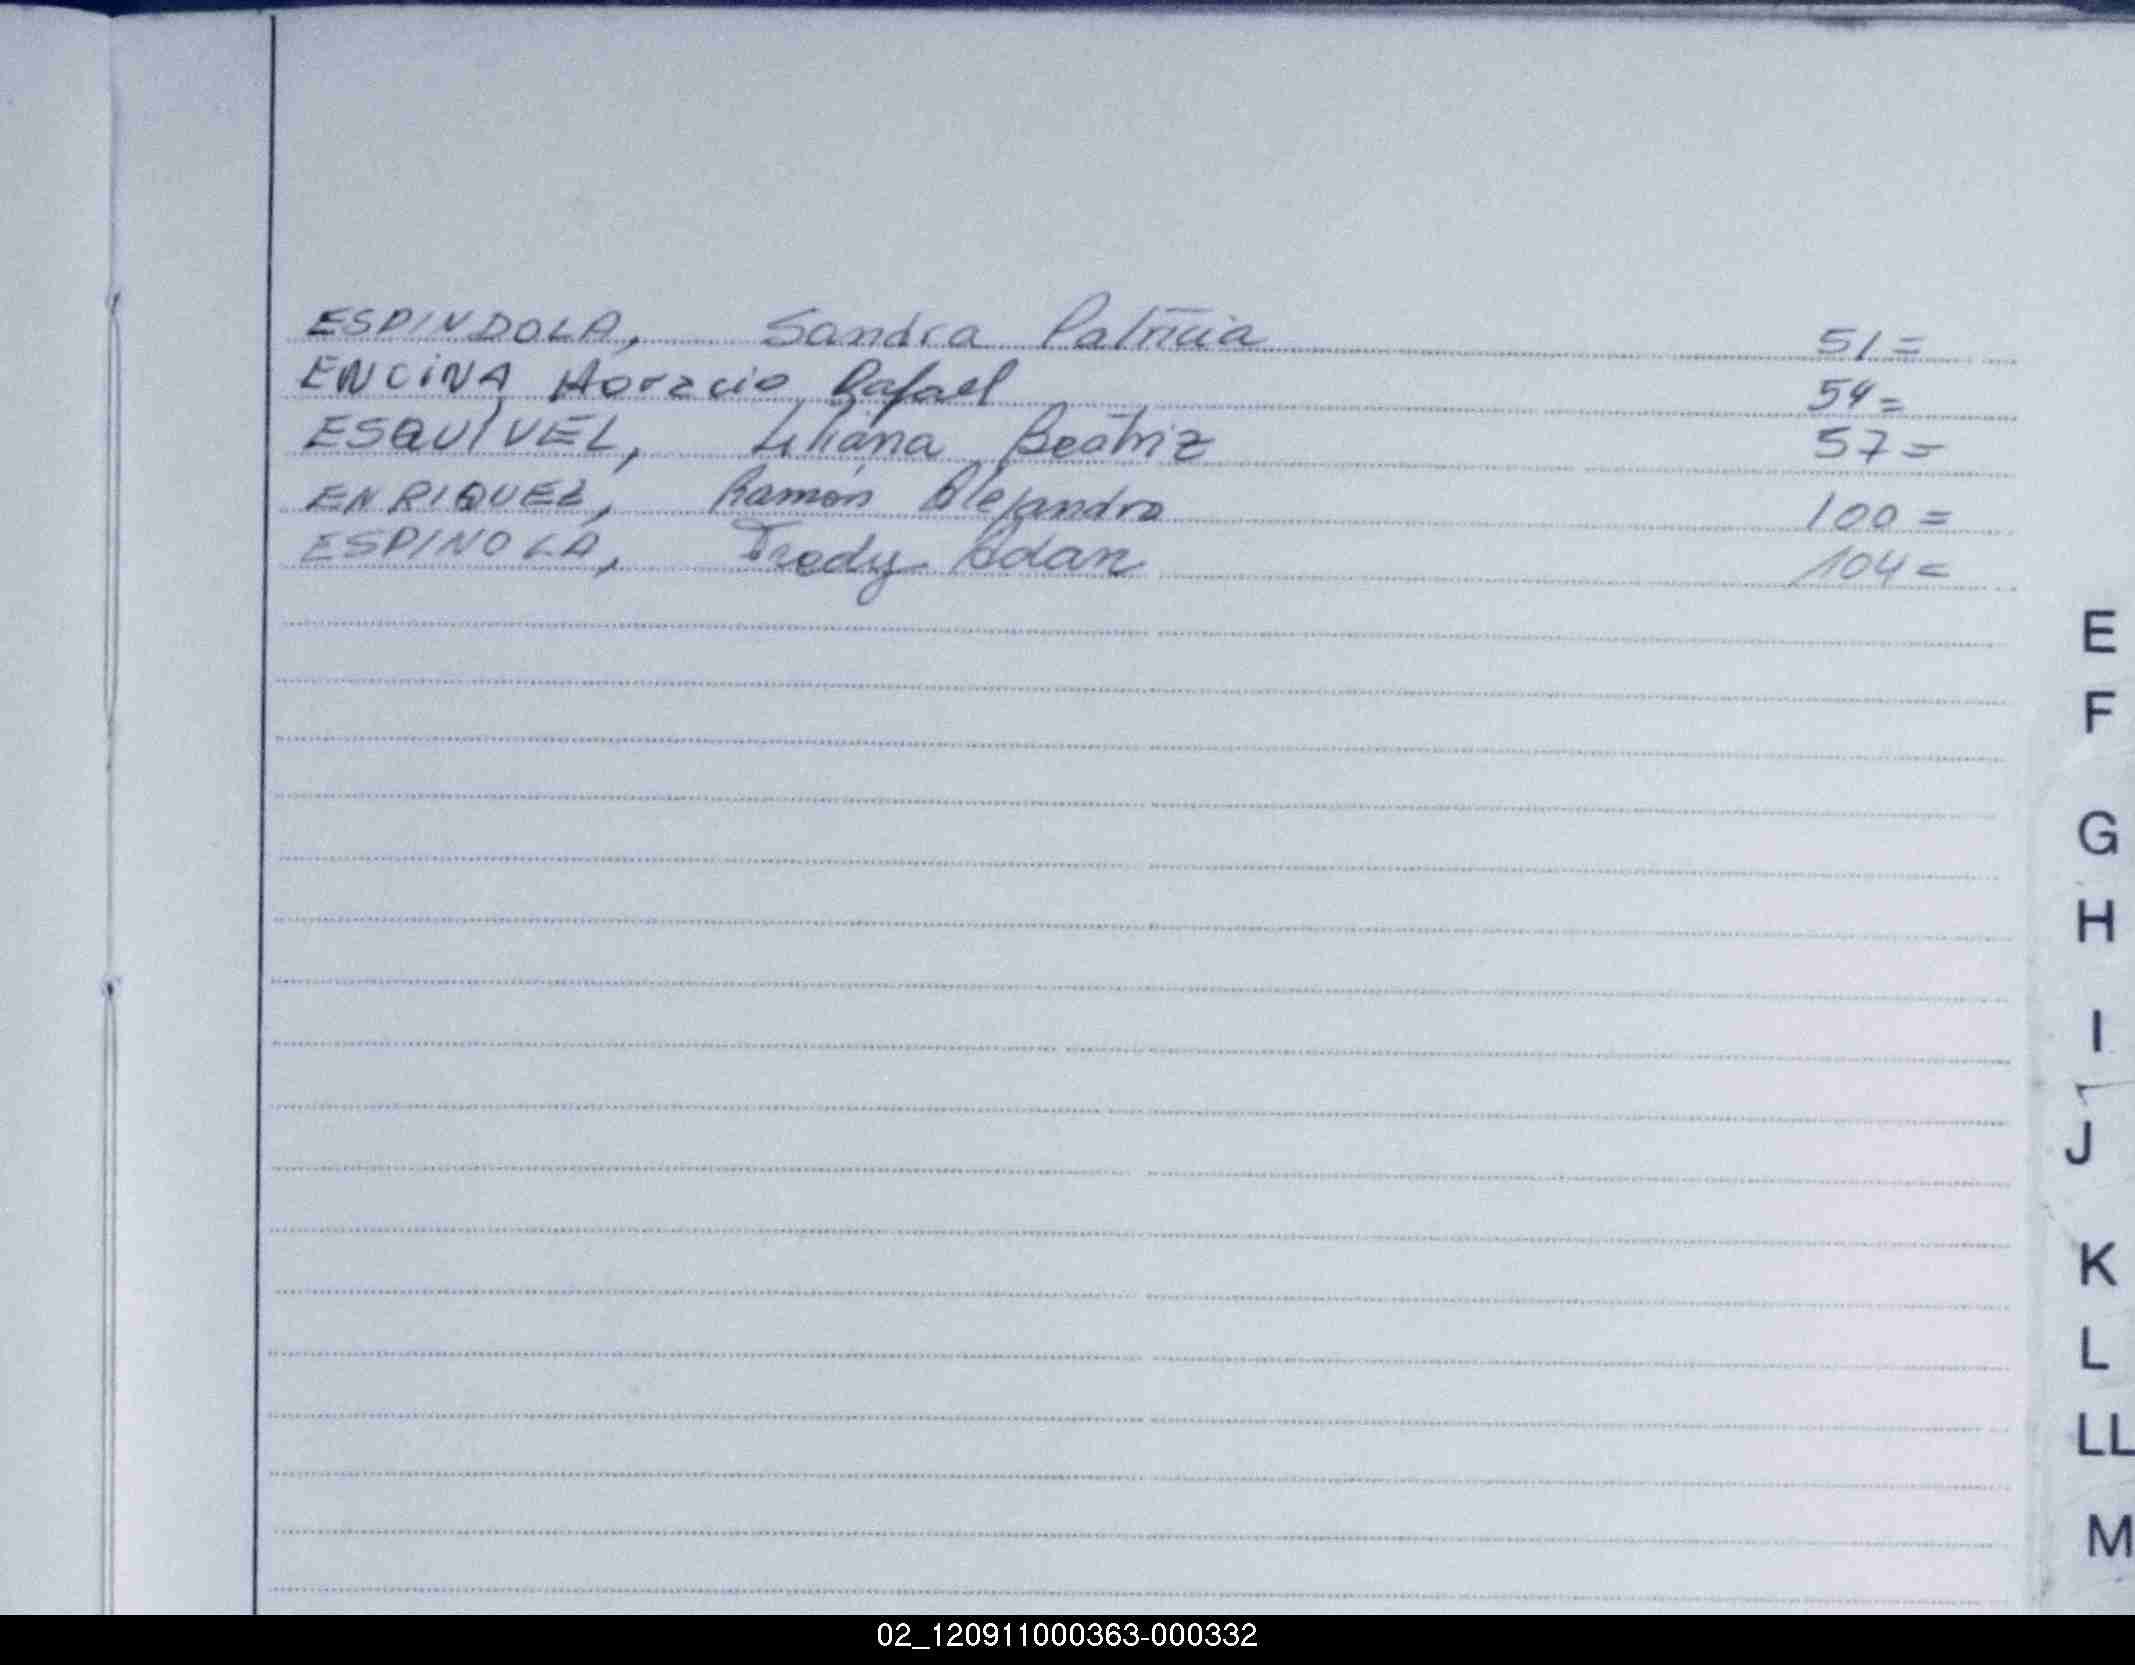 ESPINDOLA, Sandra Patricia 51=
ENCINA Horacio Rafael 54=
ESQUÍVEL, Liliana Beatriz 57=
ENRIQUEZ, Ramón Alejandro 100=
ESPINOLA, Fredy Adan 104=
E
F
G
H
I
J
K
L
LL
M
02_120911000363-000332